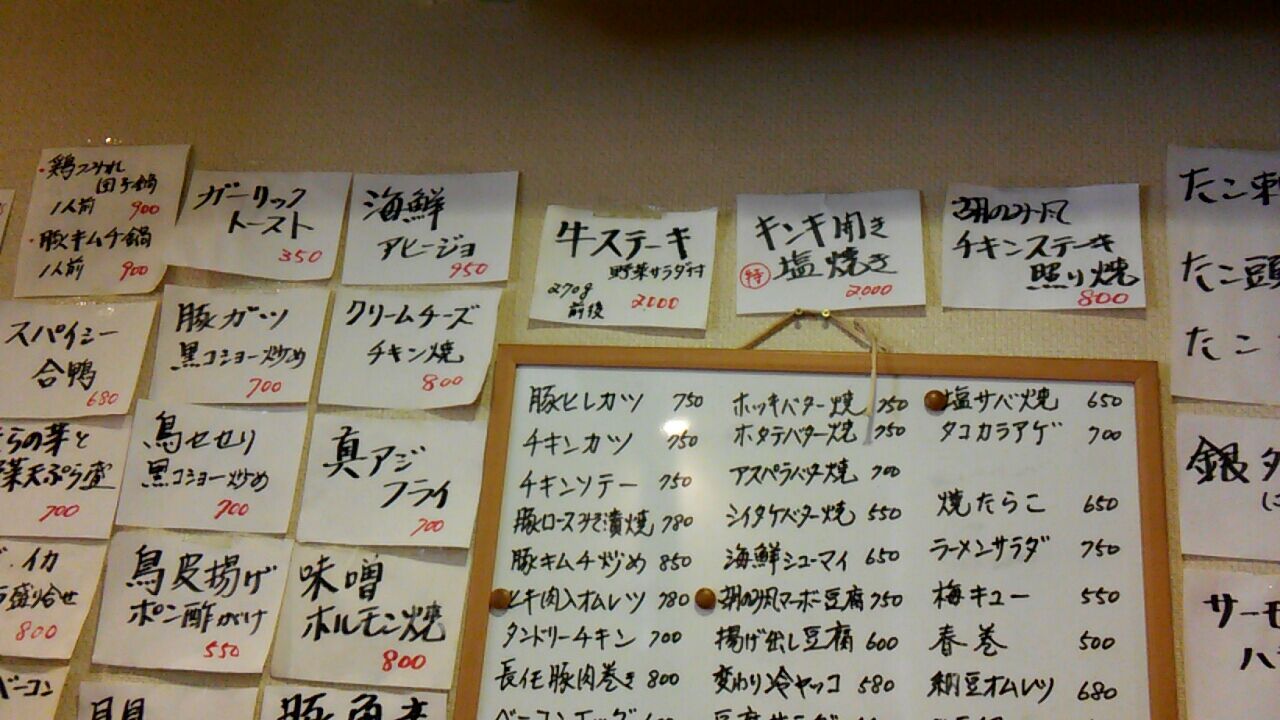 ・鶏つみれ
団子鍋
1人前 900
・豚キムチ鍋
1人前 900
ガーリック
トースト
350
海鮮
アヒージョ
950
牛ステーキ
野菜サラダ付
270g
前後 2000
キンキ開き
特 塩焼き
2000
チキンステーキ
照り焼
800
たこ刺
たこ頭
たこ
スパイシー
合鴨
680
豚ガツ
黒コショー炒め
700
クリームチーズ
チキン焼
800
らの芽と
菜天ぷら盛
700
鳥せせり
黒コショー炒め
700
真アジ
フライ
700
イカ
盛り合せ
800
鳥皮揚げ
ポン酢がけ
550
味噌
ホルモン焼
800
ベーコン
豚ヒレカツ 750
チキンカツ 750
チキンソテー 750
豚ロースみそ漬焼 780
豚キムチ炒め 850
ヒキ肉入オムレツ 780
タンドリーチキン 700
長芋豚肉巻き 800
ホッキバター焼 750
ホタテバター焼 750
アスパラバター焼 700
シイタケバター焼 550
海鮮シューマイ 650
マーボー豆腐 750
揚げ出し豆腐 600
変わり冷ヤッコ 580
塩サバ焼 650
タコカラアゲ 700
焼たらこ 650
ラーメンサラダ 750
梅キュー 550
春巻 500
納豆オムレツ 680
銀ダ
サーモ
ハ